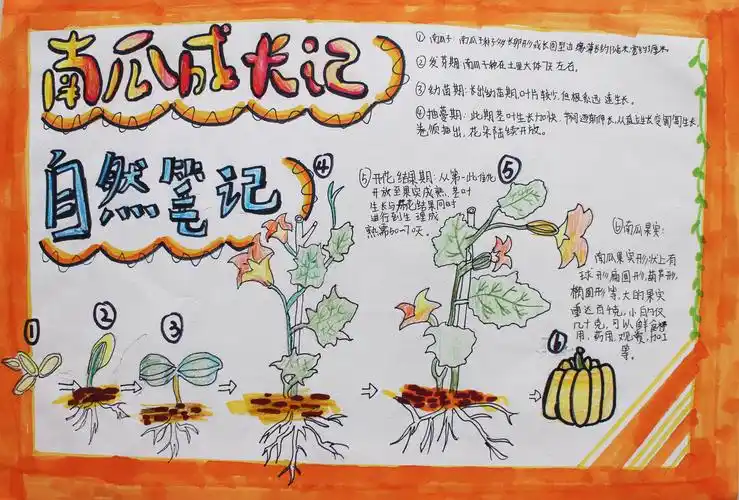 南瓜成长记
自然笔记
① 南瓜子: 南瓜子种子为长卵形或长圆型
② 发芽期: 南瓜子种在土里大体7天左右。
③ 幼苗期: 长出幼苗期,叶片较少,但根系迅速生长。
④ 抽蔓期: 此期茎叶生长加快,节间逐渐伸长,从直立生长变匍匐生长,
卷须抽出,花朵陆续开放。
⑤ 开花结果期: 从第一
开放至果实成熟,茎叶
生长与开花结果同时
进行到生理成
熟需50~70天。
⑥南瓜果实:
南瓜果实形状上有
球形扁圆形,葫芦形,
椭圆形等,大的果实
重达百千克,小的仅
几十克,可以鲜食
用,药用,观赏,加工
等。
①
②
③
④
⑤
⑥